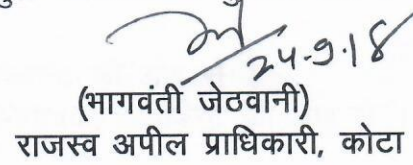 24-9-18
(भागवंती जेठवानी)
राजस्व अपील प्राधिकारी, कोटा